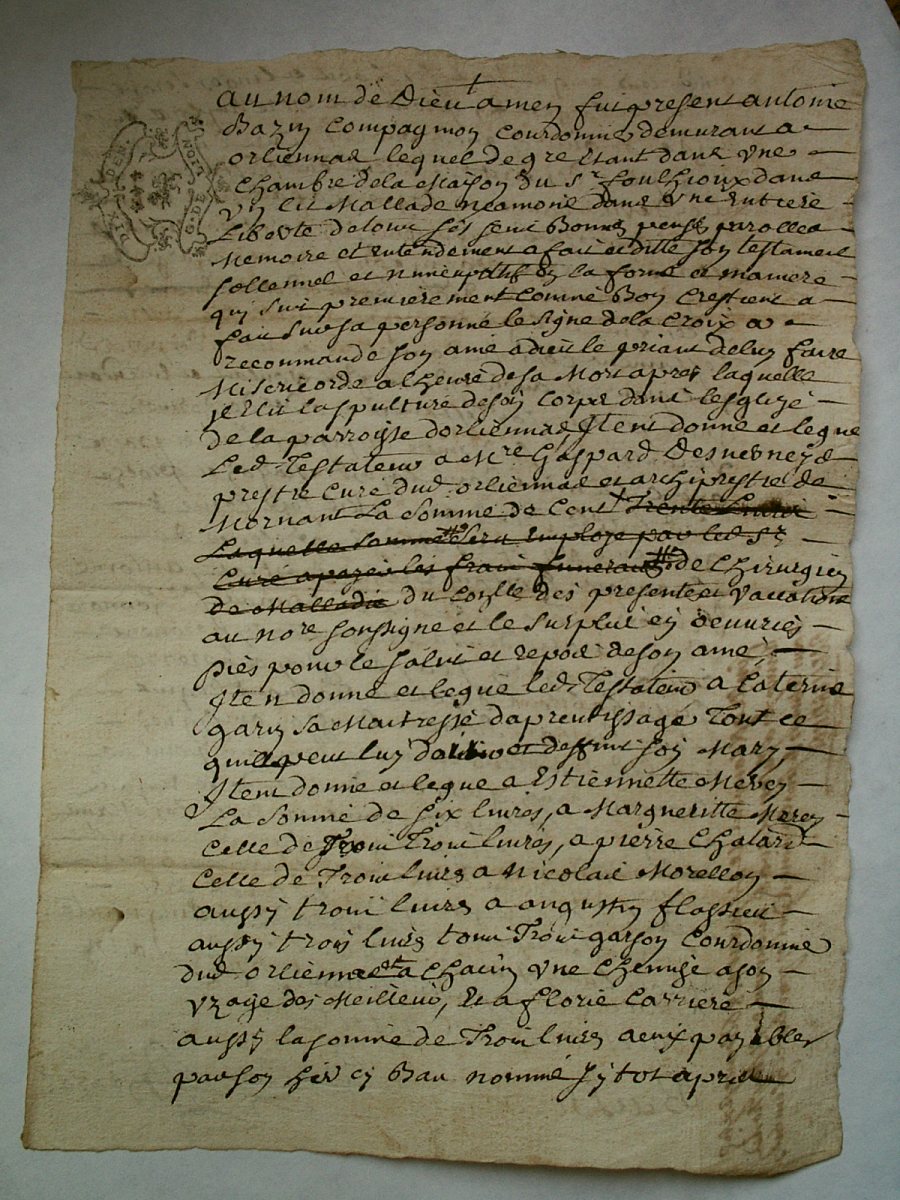 au nom de Dieu amen fut present antoine
Bazin Compagnon Courdonnier demurant a
orliennas lequel de gre Etant dans une
Chambre de la Maison du Sr foulhioux dans
un lit Mallade neamoins dans une entiere
Liberte de tous ses sens Bonnes parolles
Memoire et Entendement a fait et ditte son testament
sollennel et nuncupatif En la forme et maniere
qui suit premierement comme Bon Crestient a
fait sur sa personne le signe de la Croix a
recommande son ame a dieu le priant de luy faire
Misericorde a lheure de sa Mort apres laquelle
jl Elit la spulture de son Corps dans lesglize
de la parroisse dorliennas, Jtem donne et legue
Led. Testateur a Mre Gaspard
prestre Curé dud orliennas et archiprestre de
Mornant La Somme de Cent Trente Livres
Laquelle somme sera Employe par led. sr
Curé a payer les frais funeraux de Chirurgien
de Malladie du des presentes et vaccations
au nore sousigne et le surplus en oeuvres
pies pour le salut et repos de son ame,
Jten donne et legue led. Testateur a Caterine
garin sa Maitresse daprentissage Tout ce
quil peut luy et deffunt son Mary,
Jtem donne et legue a Estiennette
La Somme de six livres, a Margueritte
Celle de Trois livres, a pierre Chatard
Celle de Trois livres a Nicolas Morellon
aussy trois livres a augustin flassieu
aussy trois livres tous Trois garson Courdonnier
dud orliennas et a Chacun une Chemize a son
uzage des Meilleur, Et a florie Carriere
aussy la somme de Trois livres a eux payables
par son her cy Bas nommé sytot apres